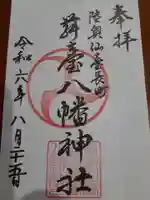 奉拝
陸奥仙臺長町
舞臺八幡神社
令和六年八月十五日